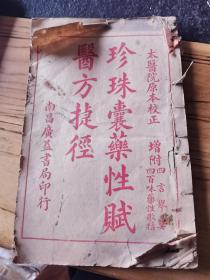 太醫院原本校正
增附
四言舉要
四百味藥性歌括
珍珠囊藥性賦
醫方捷徑
南昌廣益書局印行